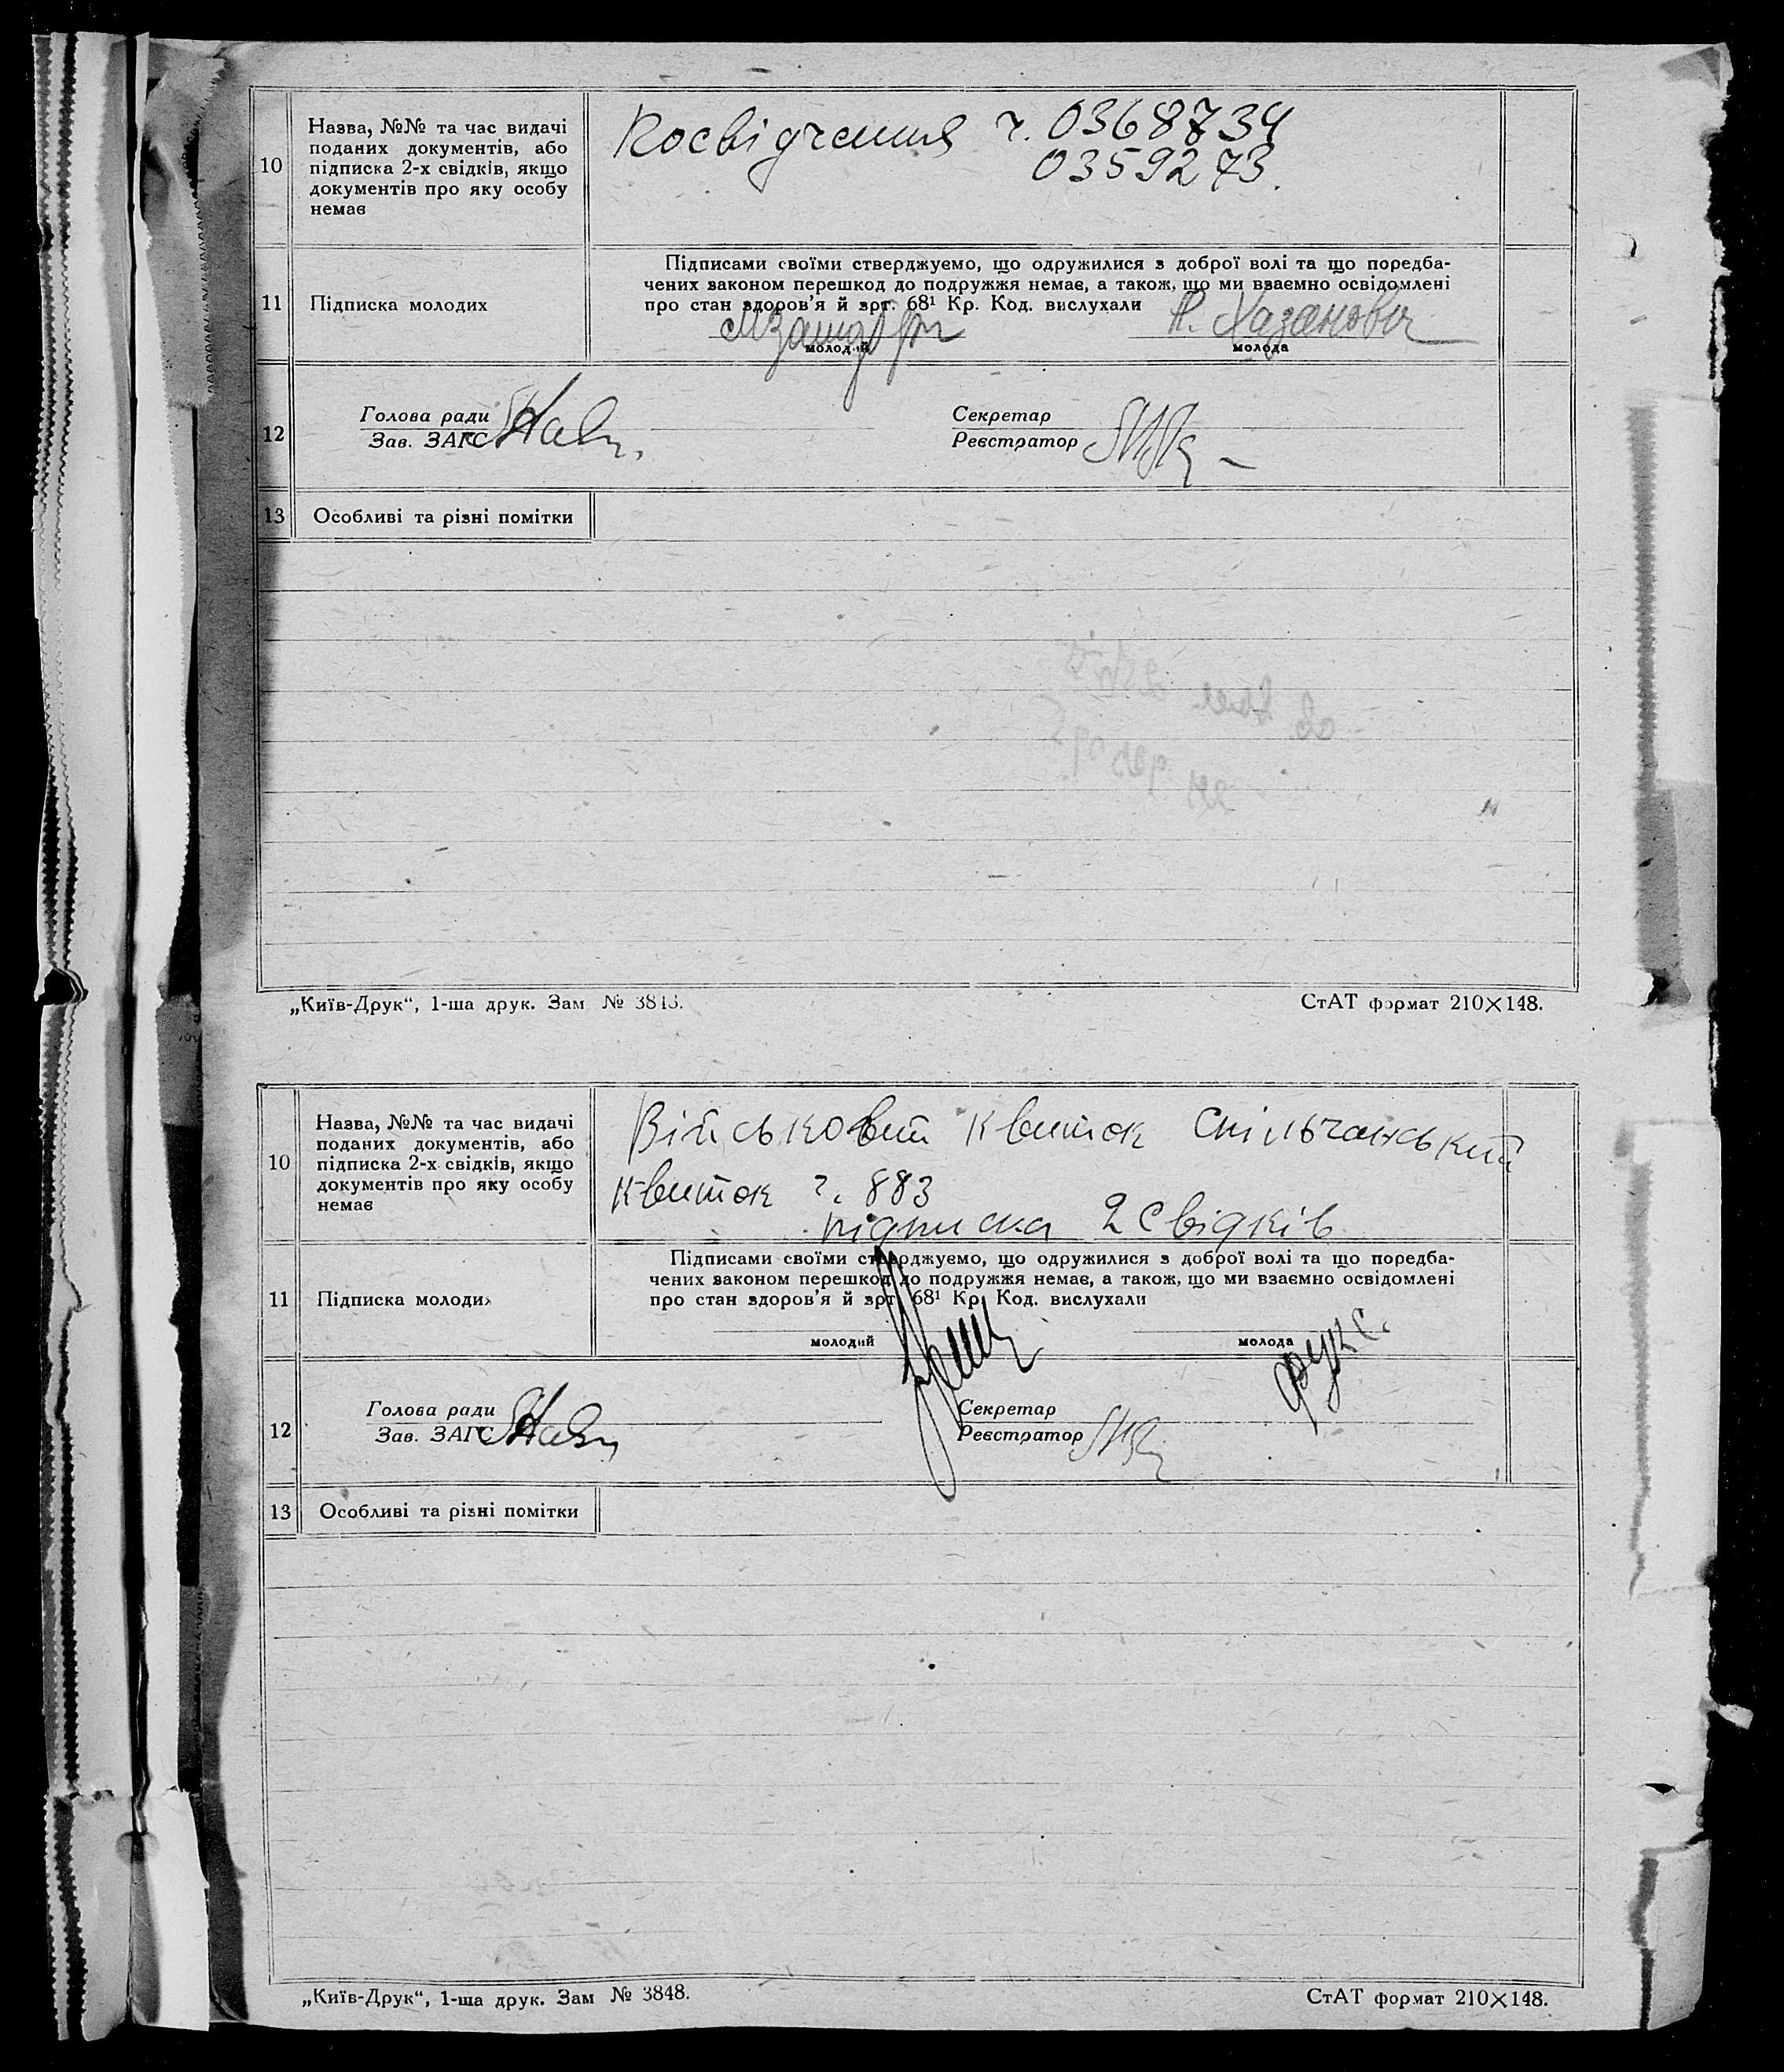 10
Назва, №№ та час видачі
поданих документів, або
підписка 2-х свідків, якщо
документів про яку особу
немає
Посвідчення ч. 0368734
0359273.
11
Підписка молодих
Підписами своїми стверджуемо, що одружилися з доброї волі та що поредба-
чених законом перешкод до подружжя немає, а також, що ми взаємно освідомлені
про стан здоров'я й врт. 68¹ Кр. Код. вислухали
молодий
молода
12
Голова ради
Зав. ЗАГС
Секретар
Реєстратор
13
Особливі та різні помітки
„Київ-Друк“, 1-ша друк. Зам № 3848.
СтАТ формат 210×148.
10
Назва, №№ та час видачі
поданих документів, або
підписка 2-х свідків, якщо
документів про яку особу
немає
Військовий квиток Спільчанський
квиток ч. 883
підписка 2 свідків
11
Підписка молодих
Підписами своїми стверджуемо, що одружилися з доброї волі та що поредба-
чених законом перешкод до подружжя немає, а також, що ми взаємно освідомлені
про стан здоров'я й врт. 68¹ Кр. Код. вислухали
молодий
молода
12
Голова ради
Зав. ЗАГС
Секретар
Реєстратор
13
Особливі та різні помітки
„Київ-Друк“, 1-ша друк. Зам № 3848.
СтАТ формат 210×148.